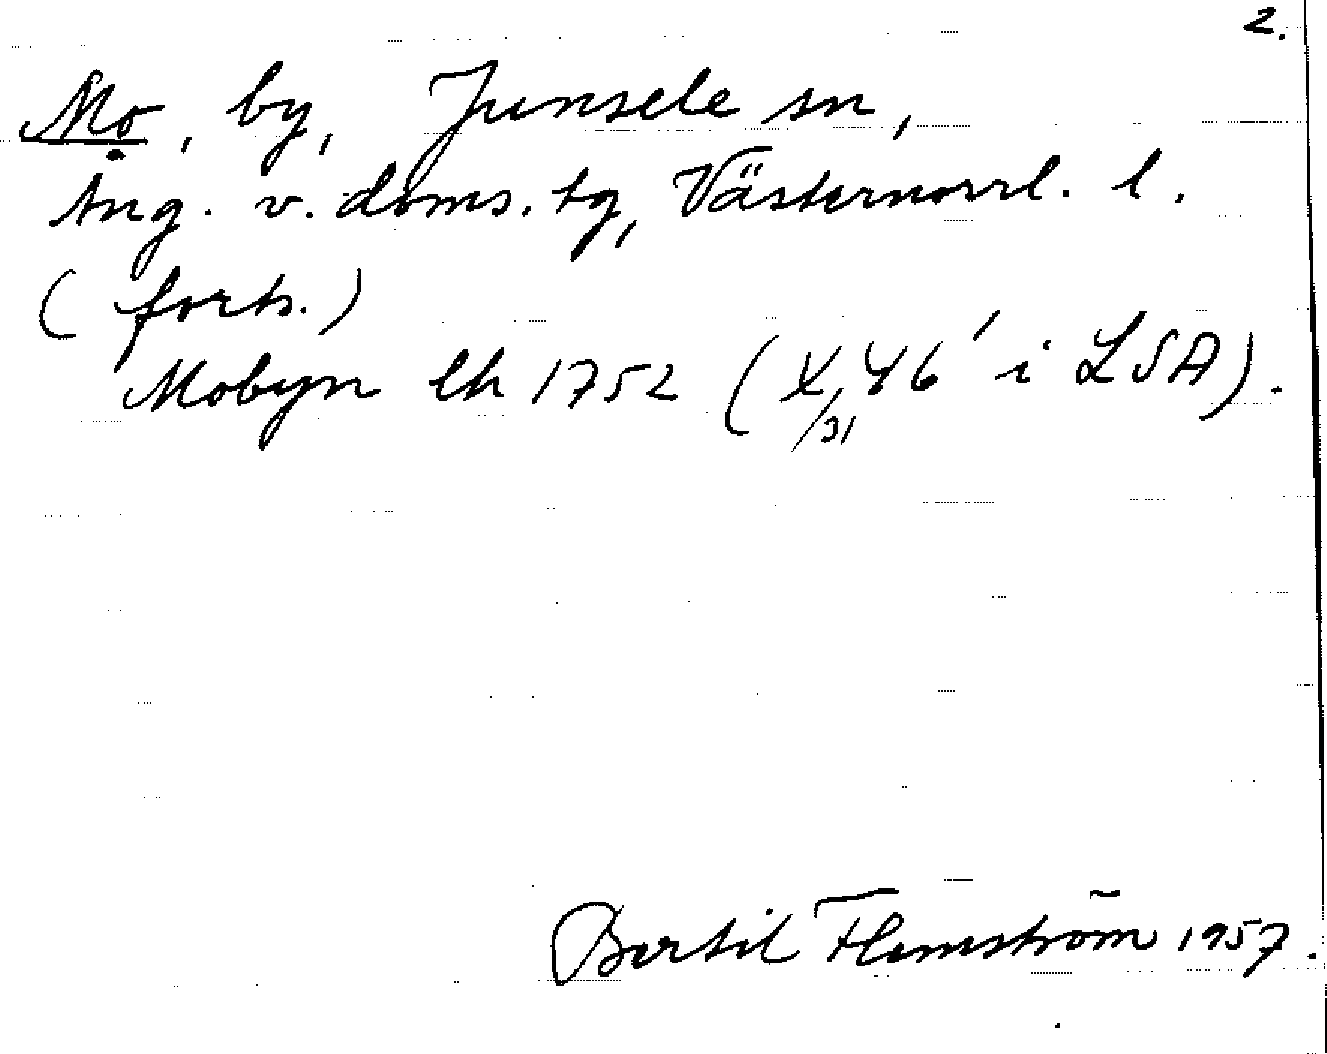 2.
Mo, by, Junsele sn,
Ång. v. doms. tg, Västernorrl. l.
(forts.)
Mobyn lh 1752 (X 46' i LSA).
/31
Bertil Flemström 1957.